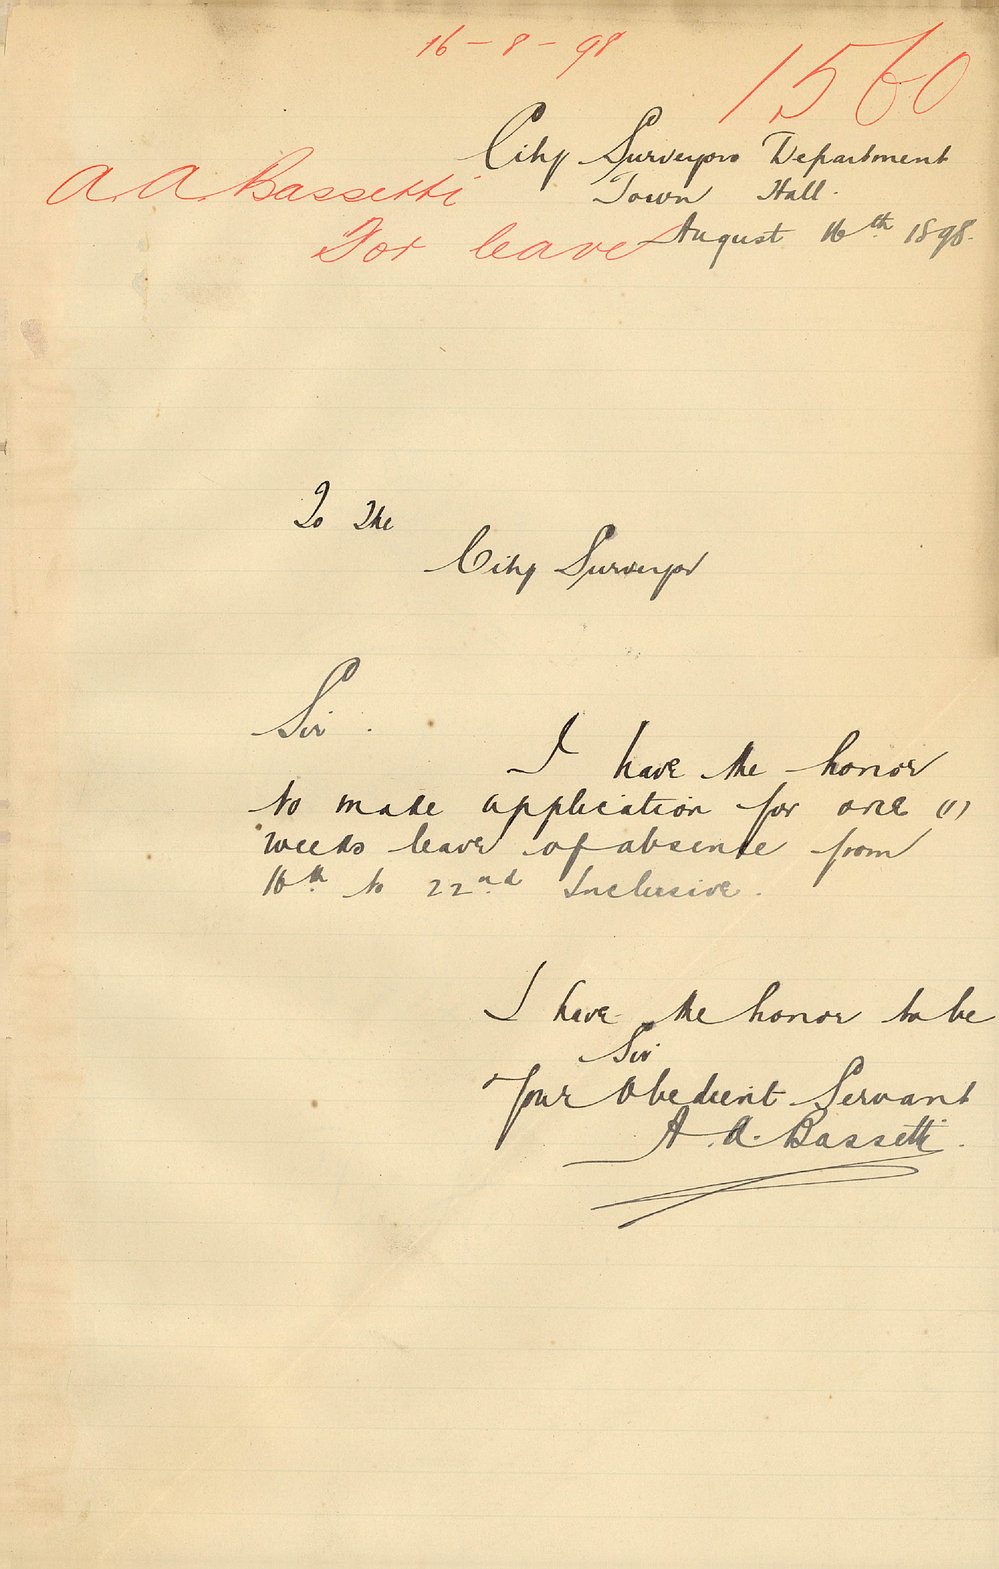 16 - 8 - 98
1560
City Surveyors Department
A A Bassetti
Town Hall.
For leave
August 16th 1898.
To The
City Surveyor
Sir.
I have the honor
to make application for one (1)
weeks leave of absence from
16th to 22nd Inclusive.
I have the honor to be
Sir
Your Obedient Servant
A. A. Bassetti.